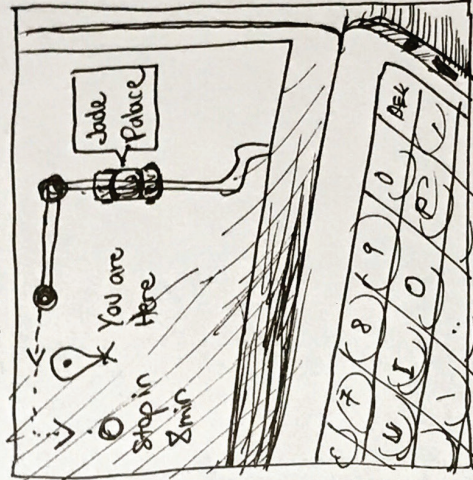 Jade
Palace
You are
Here
Stop in
8min
7 8 9 0
U I O P